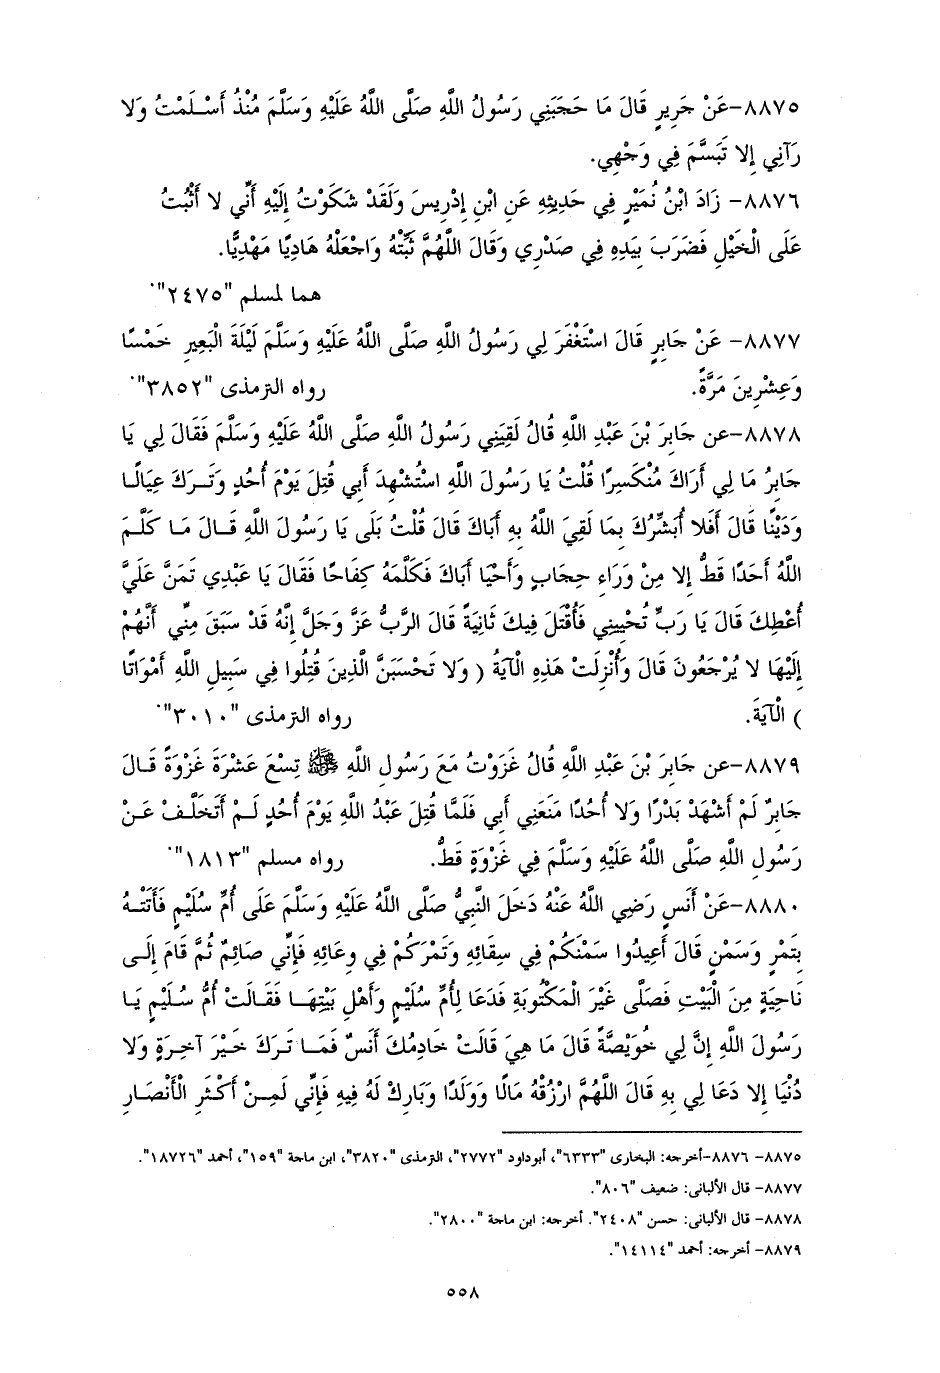 ٨٨٧٥-عَنْ جَرِيرٍ قَالَ مَا حَجَبَنِي رَسُولُ اللَّهِ صَلَّى اللَّهُ عَلَيْهِ وَسَلَّمَ مُنْذُ أَسْـلَمْتُ وَلا
رَآنِي إِلا تَبَسَّمَ فِي وَجْهِي.
٨٨٧٦- زَادَ ابْنُ نُمَيْرٍ فِي حَدِيثِهِ عَنِ ابْنِ إِدْرِيسَ وَلَقَدْ شَكَوْتُ إِلَيْهِ أَنِّي لا أَثْبُتُ
عَلَى الْخَيْلِ فَضَرَبَ بِيَدِهِ فِي صَدْرِي وَقَالَ اللَّهُمَّ ثَبِّتْهُ وَاجْعَلْهُ هَادِيًا مَهْدِيًّا.
هما لمسلم "٢٤٧٥".
٨٨٧٧- عَنْ جَابِرٍ قَالَ اسْتَغْفَرَ لِي رَسُولُ اللَّهِ صَلَّى اللَّهُ عَلَيْهِ وَسَلَّمَ لَيْلَةَ الْبَعِيرِ خَمْسًا
وَعِشْرِينَ مَرَّةً. رواه الترمذى "٣٨٥٢".
٨٨٧٨-عن جَابِرَ بْنَ عَبْدِ اللَّهِ قُالُ لَقِيَنِي رَسُولُ اللَّهِ صَلَّى اللَّهُ عَلَيْهِ وَسَلَّمَ فَقَالَ لِي يَا
جَابِرُ مَا لِي أَرَاكَ مُنْكَسِرًا قُلْتُ يَا رَسُولَ اللَّهِ اسْتُشْهِدَ أَبِي قُتِلَ يَوْمَ أُحُدٍ وَتَـرَكَ عِيَالًـا
وَدَيْنًا قَالَ أَفَلا أُبَشِّرُكَ بِمَا لَقِيَ اللَّهُ بِهِ أَبَاكَ قَالَ قُلْتُ بَلَى يَا رَسُولَ اللَّهِ قَـالَ مَـا كَلَّـمَ
اللَّهُ أَحَدًا قَطُّ إِلا مِنْ وَرَاءِ حِجَابٍ وَأَحْيَا أَبَاكَ فَكَلَّمَهُ كِفَاحًا فَقَالَ يَا عَبْدِي تَمَنَّ عَلَيَّ
أُعْطِكَ قَالَ يَا رَبِّ تُحْيِينِي فَأُقْتَلَ فِيكَ ثَانِيَةً قَالَ الرَّبُّ عَزَّ وَجَلَّ إِنَّهُ قَدْ سَبَقَ مِنِّي أَنَّهُمْ
إِلَيْهَا لا يُرْجَعُونَ قَالَ وَأُنْزِلَتْ هَذِهِ الْآيَةُ ( وَلا تَحْسَبَنَّ الَّذِينَ قُتِلُوا فِي سَبِيلِ اللَّهِ أَمْوَاتًا
) الْآيَةَ. رواه الترمذى "٣٠١٠".
٨٨٧٩-عن جَابِرَ بْنَ عَبْدِ اللَّهِ قُالُ غَزَوْتُ مَعَ رَسُولِ اللَّهِ ﷺ تِسْعَ عَشْرَةَ غَزْوَةً قَـالَ
جَابِرٌ لَمْ أَشْهَدْ بَدْرًا وَلا أُحُدًا مَنَعَنِي أَبِي فَلَمَّا قُتِلَ عَبْدُ اللَّهِ يَوْمَ أُحُدٍ لَـمْ أَتَخَلَّـفْ عَـنْ
رَسُولِ اللَّهِ صَلَّى اللَّهُ عَلَيْهِ وَسَلَّمَ فِي غَزْوَةٍ قَطُّ. رواه مسلم "١٨١٣".
٨٨٨٠-عَنْ أَنَسٍ رَضِي اللَّهُ عَنْهُ دَخَلَ النَّبِيُّ صَلَّى اللَّهُ عَلَيْهِ وَسَلَّمَ عَلَى أُمِّ سُلَيْمٍ فَأَتَتْـهُ
بِتَمْرٍ وَسَمْنٍ قَالَ أَعِيدُوا سَمْنَكُمْ فِي سِقَائِهِ وَتَمْرَكُمْ فِي وِعَائِهِ فَإِنِّي صَائِمٌ ثُمَّ قَامَ إِلَـى
نَاحِيَةٍ مِنَ الْبَيْتِ فَصَلَّى غَيْرَ الْمَكْتُوبَةِ فَدَعَا لِأُمِّ سُلَيْمٍ وَأَهْلِ بَيْتِهَـا فَقَـالَتْ أُمُّ سُـلَيْمٍ يَـا
رَسُولَ اللَّهِ إِنَّ لِي خُوَيْصَّةً قَالَ مَا هِيَ قَالَتْ خَادِمُكَ أَنَسٌ فَمَـا تَـرَكَ خَـيْرَ آخِـرَةٍ وَلا
دُنْيَا إِلا دَعَا لِي بِهِ قَالَ اللَّهُمَّ ارْزُقْهُ مَالًا وَوَلَدًا وَبَارِكْ لَهُ فِيهِ فَإِنِّي لَمِـنْ أَكْـثَرِ الْأَنْصَـارِ
٨٨٧٥- ٨٨٧٦-أخرجه: البخارى "٦٣٣٣"، أبوداود "٢٧٧٢"، الترمذى "٣٨٢٠"، ابن ماجة "١٥٩"، أحمد "١٨٧٢٦".
٨٨٧٧- قال الألبانى: ضعيف "٨٠٦".
٨٨٧٨- قال الألبانى: حسن "٢٤٠٨". أخرجه: ابن ماجة "٢٨٠٠".
٨٨٧٩- أخرجه: أحمد "١٤١١٤".
٥٥٨